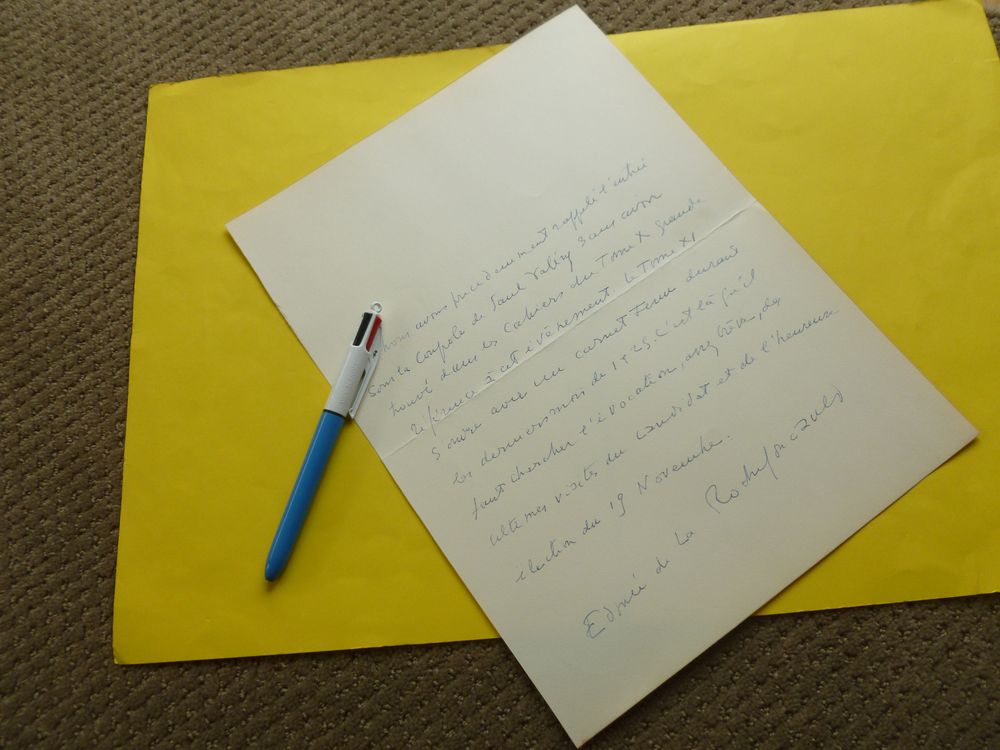 nous avons précédemment rappelé l'entrée
sous la Coupole de Paul Valéry sans avoir
trouvé dans les Cahiers du Tome X grande
référence à cet évènement. Le Tome XI
s'ouvre avec un carnet tenu durant
les derniers mois de 1925. C'est là qu'il
faut chercher l'évocation, assez brève, des
ultimes visites du candidat et de l'heureuse
élection du 19 Novembre.
Edmée de La Rochefoucauld